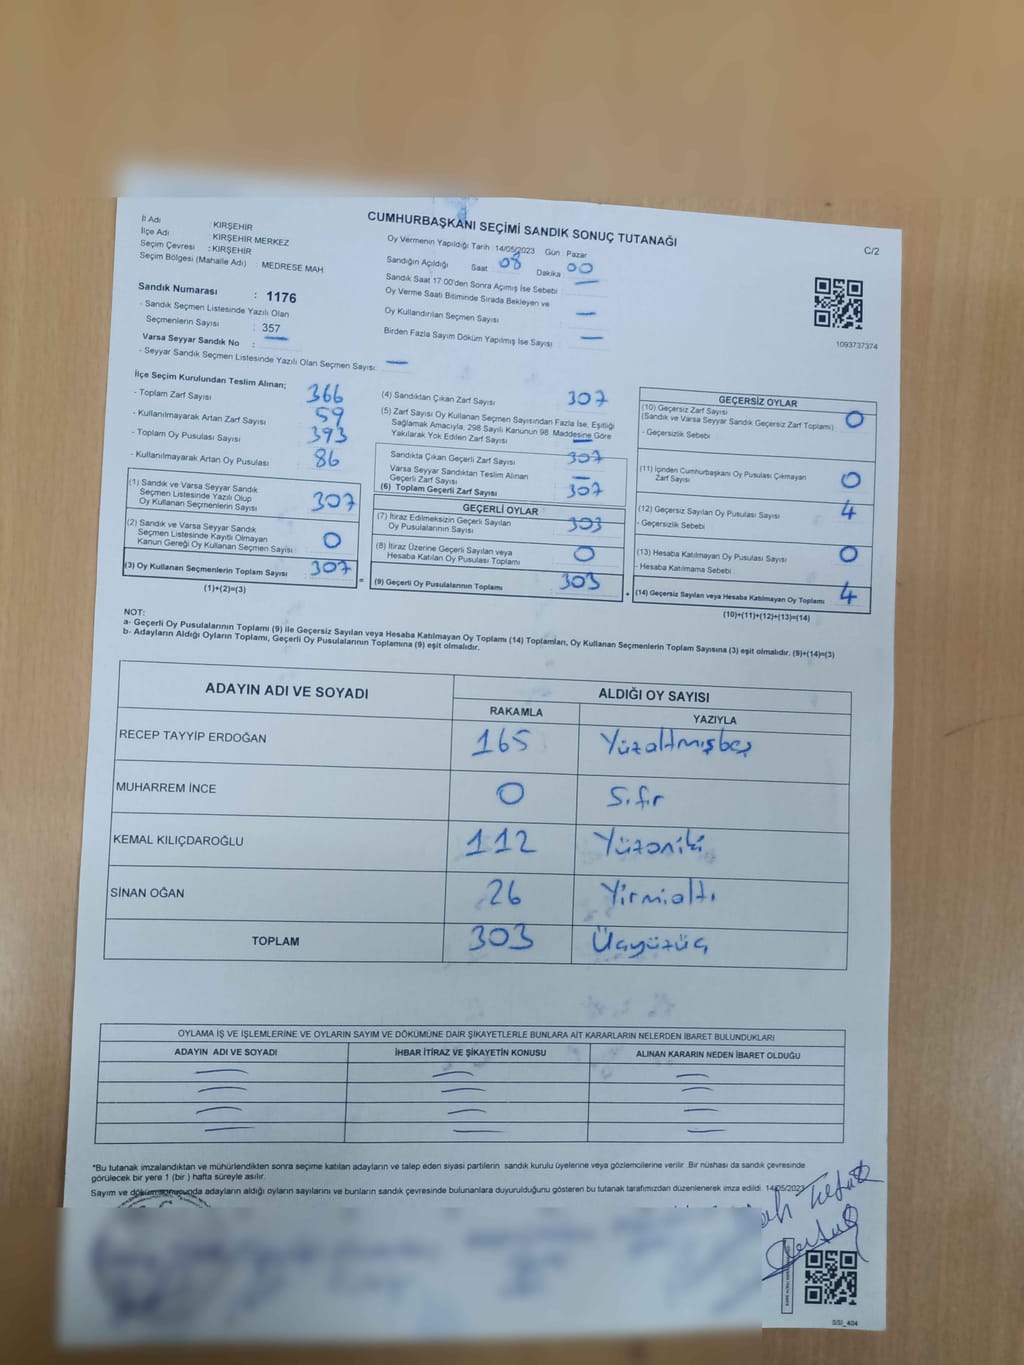 CUMHURBAŞKANI SEÇİMİ SANDIK SONUÇ TUTANAĞI
C/2
İl Adı : KIRŞEHİR
İlçe Adı : KIRŞEHİR MERKEZ
Seçim Çevresi : KIRŞEHİR
Seçim Bölgesi (Mahalle Adı) : MEDRESE MAH.
Oy Vermenin Yapıldığı Tarih 14/05/2023 Gün : Pazar
Sandığın Açıldığı Saat 08 Dakika 00
Sandık Saat 17.00'den Sonra Açımış İse Sebebi —
Oy Verme Saati Bitiminde Sırada Bekleyen ve
Oy Kullandırılan Seçmen Sayısı —
Birden Fazla Sayım Döküm Yapılmış İse Sayısı —
1093737374
Sandık Numarası : 1176
- Sandık Seçmen Listesinde Yazılı Olan
Seçmenlerin Sayısı : 357
Varsa Seyyar Sandık No : —
- Seyyar Sandık Seçmen Listesinde Yazılı Olan Seçmen Sayısı: —
İlçe Seçim Kurulundan Teslim Alınan;
- Toplam Zarf Sayısı 366
- Kullanılmayarak Artan Zarf Sayısı 59
- Toplam Oy Pusulası Sayısı 393
- Kullanılmayarak Artan Oy Pusulası 86
(1) Sandık ve Varsa Seyyar Sandık
Seçmen Listesinde Yazılı Olup
Oy Kullanan Seçmenlerin Sayısı 307
(2) Sandık ve Varsa Seyyar Sandık
Seçmen Listesinde Kayıtlı Olmayan
Kanun Gereği Oy Kullanan Seçmen Sayısı 0
(3) Oy Kullanan Seçmenlerin Toplam Sayısı 307
(1)+(2)=(3)
=
(4) Sandıktan Çıkan Zarf Sayısı 307
(5) Zarf Sayısı Oy Kullanan Seçmen Sayısından Fazla İse, Eşitliği
Sağlamak Amacıyla, 298 Sayılı Kanunun 98. Maddesine Göre
Yakılarak Yok Edilen Zarf Sayısı —
Sandıkta Çıkan Geçerli Zarf Sayısı 307
Varsa Seyyar Sandıktan Teslim Alınan
Geçerli Zarf Sayısı —
(6) Toplam Geçerli Zarf Sayısı 307
GEÇERLİ OYLAR
(7) İtiraz Edilmeksizin Geçerli Sayılan
Oy Pusulalarının Sayısı 303
(8) İtiraz Üzerine Geçerli Sayılan veya
Hesaba Katılan Oy Pusulası Toplamı 0
(9) Geçerli Oy Pusulalarının Toplamı 303
+
GEÇERSİZ OYLAR
(10) Geçersiz Zarf Sayısı
(Sandık ve Varsa Seyyar Sandık Geçersiz Zarf Toplamı) 0
- Geçersizlik Sebebi
(11) İçinden Cumhurbaşkanı Oy Pusulası Çıkmayan
Zarf Sayısı 0
(12) Geçersiz Sayılan Oy Pusulası Sayısı 4
- Geçersizlik Sebebi
(13) Hesaba Katılmayan Oy Pusulası Sayısı 0
- Hesaba Katılmama Sebebi
(14) Geçersiz Sayılan veya Hesaba Katılmayan Oy Toplamı 4
(10)+(11)+(12)+(13)=(14)
NOT:
a- Geçerli Oy Pusulasının Toplamı (9) ile Geçersiz Sayılan veya Hesaba Katılmayan Oy Toplamı (14) Toplamları, Oy Kullanan Seçmenlerin Toplam Sayısına (3) eşit olmalıdır. (9)+(14)=(3)
b- Adayların Aldığı Oyların Toplamı, Geçerli Oy Pusulalarının Toplamına (9) eşit olmalıdır.
ADAYIN ADI VE SOYADI ALDIĞI OY SAYISI
RAKAMLA YAZIYLA
RECEP TAYYİP ERDOĞAN 165 Yüzaltmışbeş
MUHARREM İNCE 0 Sıfır
KEMAL KILIÇDAROĞLU 112 Yüzoniki
SİNAN OĞAN 26 Yirmialtı
TOPLAM 303 Üçyüzüç
OYLAMA İŞ VE İŞLEMLERİNE VE OYLARIN SAYIM VE DÖKÜMÜNE DAİR ŞİKAYETLERLE BUNLARA AİT KARARLARIN NELERDEN İBARET BULUNDUKLARI
ADAYIN ADI VE SOYADI İHBAR İTİRAZ VE ŞİKAYETİN KONUSU ALINAN KARARIN NEDEN İBARET OLDUĞU
*Bu tutanak imzalandıktan ve mühürlendikten sonra seçime katılan adayların ve talep eden siyasi partilerin sandık kurulu üyelerine veya gözlemcilerine verilir. Bir nüshası da sandık çevresinde
görülecek bir yere 1 (bir) hafta süreyle asılır.
Sayım ve döküm sonucunda adayların aldığı oyların sayılarını ve bunların sandık çevresinde bulunanlara duyurulduğunu gösteren bu tutanak tarafımızdan düzenlenerek imza edildi. 14/05/2023
SSI_404